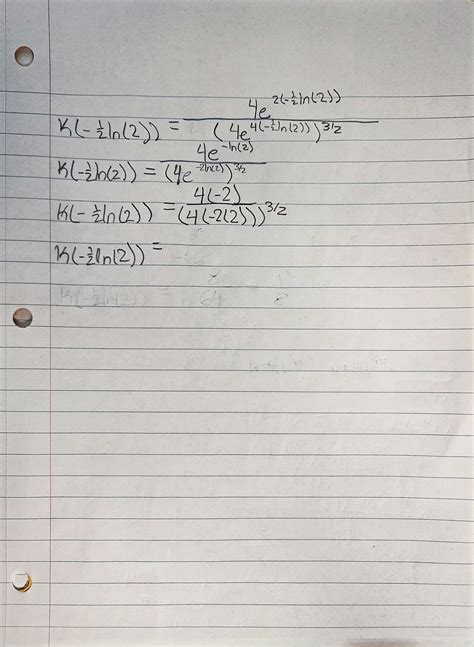 K(-½ln(2)) = 4e^{2(-½ln(2))} / (4e^{4(-½ln(2))})^{3/2}
K(-½ln(2)) = 4e^{-ln(2)} / (4e^{-2ln(2)})^{3/2}
K(-½ln(2)) = 4(-2) / (4(-2(2)))^{3/2}
K(-½ln(2)) =
K(-½ln(2)) =